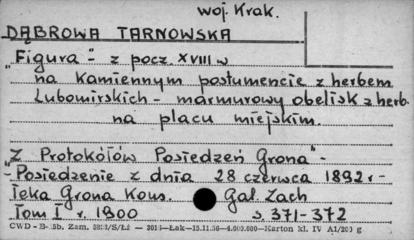 woj. Krak.
DĄBROWA TARNOWSKA
„Figura" - z pocz. XVIII w
na kamiennym postumencie z herbem
Lubomirskich - marmurowy obelisk z herb.
na placu miejskim.
„Z Protokółów Posiedzeń Grona" -
- Posiedzenie z dnia 28 czerwca 1892 r -
Teka Grona Kons. Gal. Zach
Tom I r. 1900 s. 371-372
CWD - B-5b. Zam. S/Łż — Łak—15.11.56—4.000.000—Karton kl. IV A1/200 g